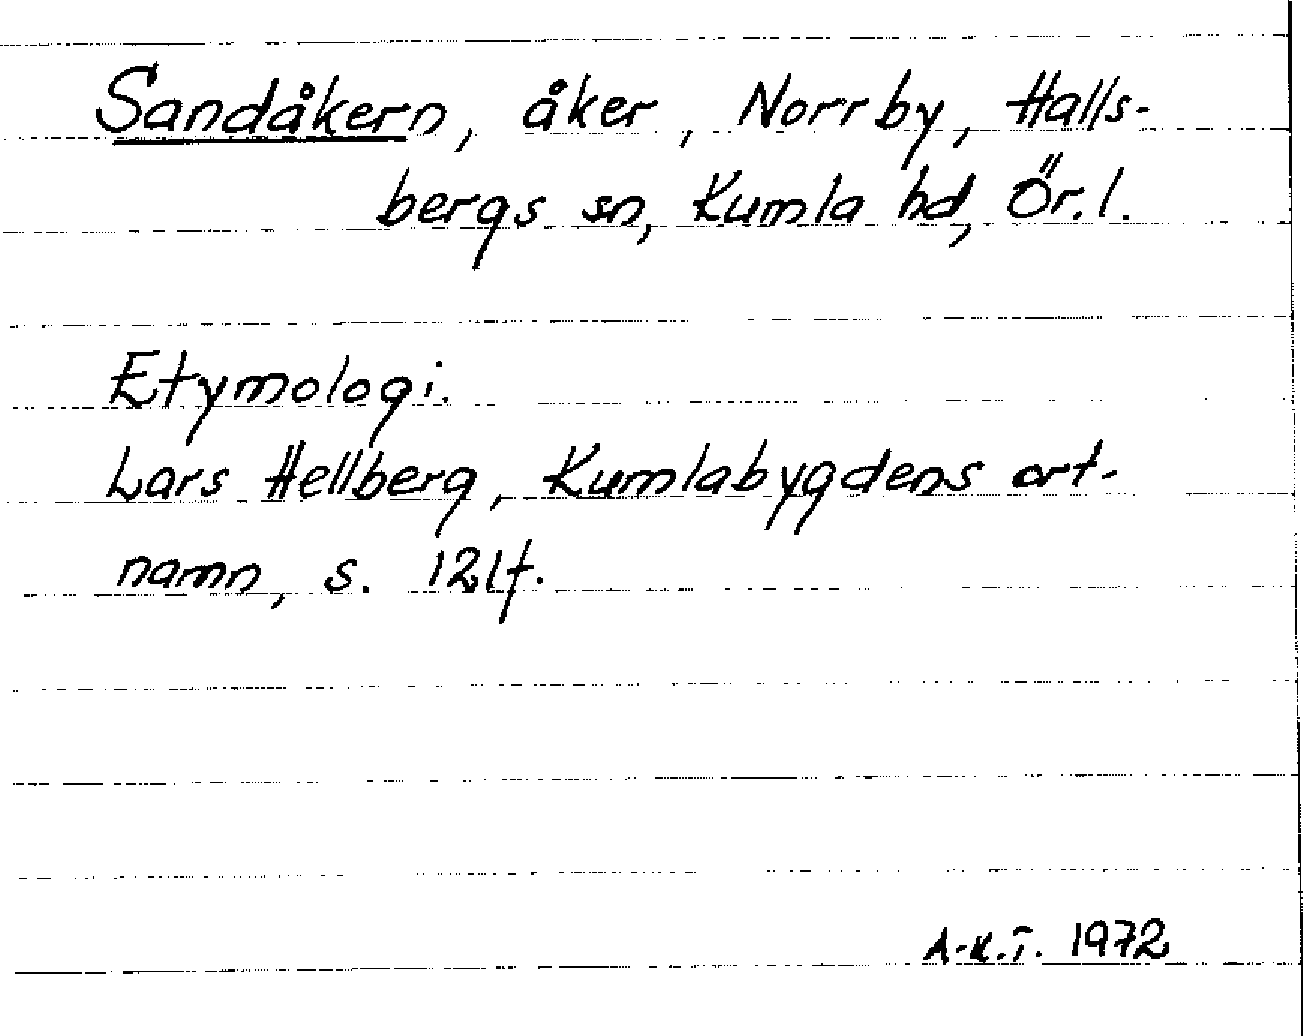 Sandåkern, åker, Norrby, Halls-
bergs sn, Kumla hd, Ör. l.
Etymologi.
Lars Hellberg, Kumlabygdens ort-
namn, s. 121f.
A-K.T. 1972